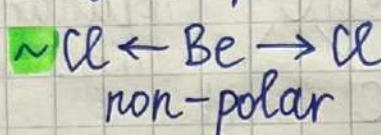 ~Cl ← Be → Cl
non-polar